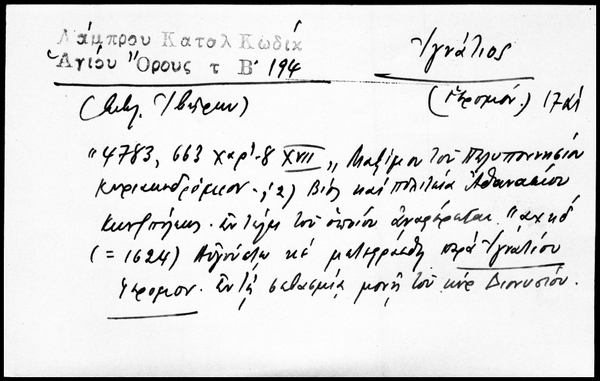 Λάμπρου Καταλ Κωδίκ
Ἁγίου Ὄρους τ Β' 194
Ἰγνάτιος
(Ἰβήρων)
(ἱερομόν.) 17 αἰ
"4783, 663 χαρ. 8 XVII „ Μαξίμου τοῦ Πελοποννησίου
Κυριακοδρόμιον. ; 2) Βίος καὶ πολιτεία Ἀθανασίου
Κων/πόλεως. ἐν τέλει τοῦ ὁποίου ἀναφέρεται. "αχκδ
(= 1624) Αὐγούστῳ κέ μετεφράσθη παρὰ Ἰγνατίου
ἱερομον. ἐν τῇ σεβασμίᾳ μονῇ τοῦ κὺρ Διονυσίου.